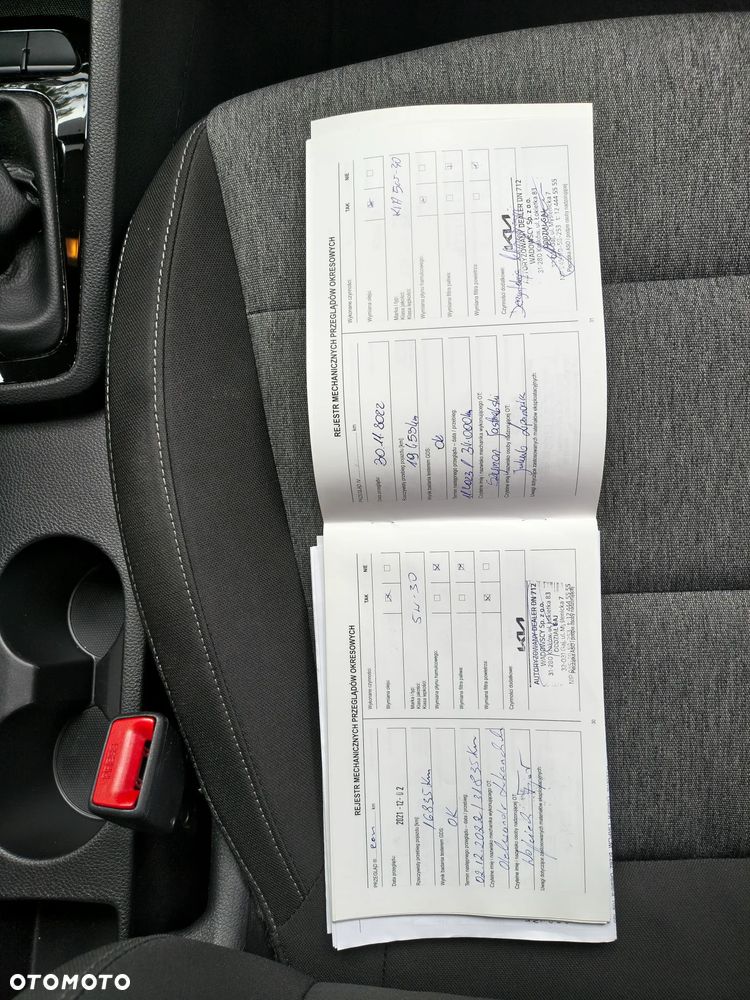 REJESTR MECHANICZNYCH PRZEGLĄDÓW OKRESOWYCH
PRZEGLĄD III
km
Data przeglądu:
2021-12-02
Rzeczywisty przebieg pojazdu [km]:
16835 km
Wynik badania testerem GDS:
OK
Termin następnego przeglądu – data / przebieg:
02.12.2022 / 31835 km
Czytelne imię i nazwisko mechanika wykonującego OT:
Czytelne imię i nazwisko osoby nadzorującej OT:
Uwagi dotyczące zastosowanych materiałów eksploatacyjnych:
Wykonane czynności:
TAK
NIE
Wymiana oleju:
Marka i typ:
Klasa jakości:
Klasa lepkości:
5W-30
Wymiana płynu hamulcowego:
Wymiana filtra paliwa:
Wymiana filtra powietrza:
Czynności dodatkowe:
KIA
AUTORYZOWANY DEALER DN 712
WADOWSCY Sp. z o.o.
31-280 Kraków, ul. Łokietka 83
ODDZIAŁ GAJ
32-031 Gaj, ul. Myślenicka 7
30
REJESTR MECHANICZNYCH PRZEGLĄDÓW OKRESOWYCH
PRZEGLĄD IV
km
Data przeglądu:
30.11.2022
Rzeczywisty przebieg pojazdu [km]:
Wynik badania testerem GDS:
ok
Termin następnego przeglądu – data / przebieg:
Czytelne imię i nazwisko mechanika wykonującego OT:
Szymon
Czytelne imię i nazwisko osoby nadzorującej OT:
Jakub
Uwagi dotyczące zastosowanych materiałów eksploatacyjnych:
Wykonane czynności:
TAK
NIE
Wymiana oleju:
Marka i typ:
Klasa jakości:
Klasa lepkości:
5W-30
Wymiana płynu hamulcowego:
Wymiana filtra paliwa:
Wymiana filtra powietrza:
Czynności dodatkowe:
KIA
AUTORYZOWANY DEALER DN 712
WADOWSCY Sp. z o.o.
31-280 Kraków, ul. Łokietka 83
31
PRESS
OTOMOTO